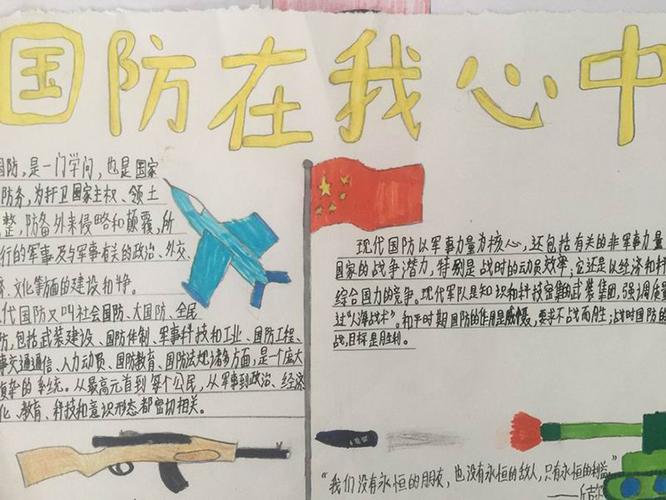 国防在我心中
国防，是一门学问，也是国家
防务，为扞卫国家主权、领土
整，防备外来侵略和颠覆，所
行的军事及与军事有关的政治、外交、
文化等方面的建设和斗争。
代国防又叫社会国防、大国防、全民
防，包括武装建设、国防体制、军事科技和工业、国防工程、
事交通通信、人力动员、国防教育、国防法规诸多方面，是一个庞大
复杂的系统。从最高元首到每个公民，从军事到政治、经济
化、教育、科技和意识形态都密切相关。
现代国防以军事力量为核心，还包括有关的非军事力量
国家的战争潜力，特别是战时的动员效率，它还是以经济和科
综合国力的竞争。现代军队是知识和科技密集的武装集团，强调质量
过“人海战术”。和平时期国防的作用是威慑，要求不战而胜；战时国防的
战，目标是胜利。
“我们没有永恒的朋友，也没有永恒的敌人，只有永恒的利益”